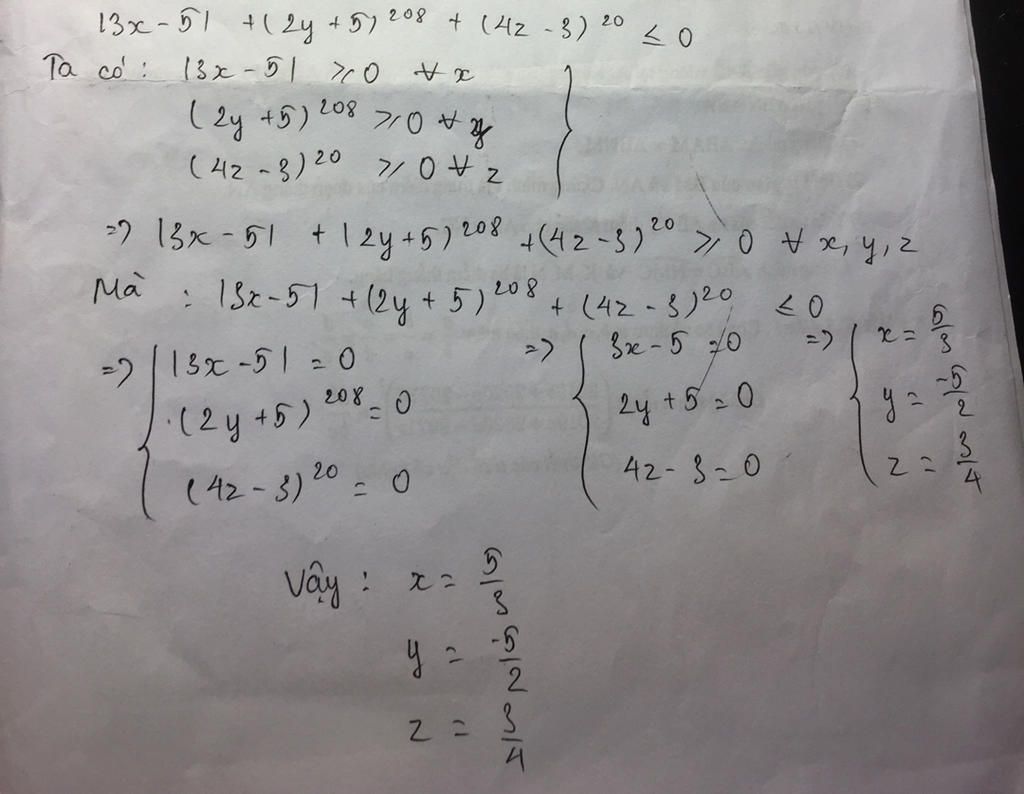 |3x - 5| + (2y + 5)^208 + (4z - 3)^20 ≤ 0
Ta có: |3x - 5| ≥ 0 ∀ x
(2y + 5)^208 ≥ 0 ∀ y
(4z - 3)^20 ≥ 0 ∀ z
=> |3x - 5| + (2y + 5)^208 + (4z - 3)^20 ≥ 0 ∀ x, y, z
Mà: |3x - 5| + (2y + 5)^208 + (4z - 3)^20 ≤ 0
=> |3x - 5| = 0 => 3x - 5 = 0 => x = 5/3
(2y + 5)^208 = 0 2y + 5 = 0 y = -5/2
(4z - 3)^20 = 0 4z - 3 = 0 z = 3/4
Vậy: x = 5/3
y = -5/2
z = 3/4